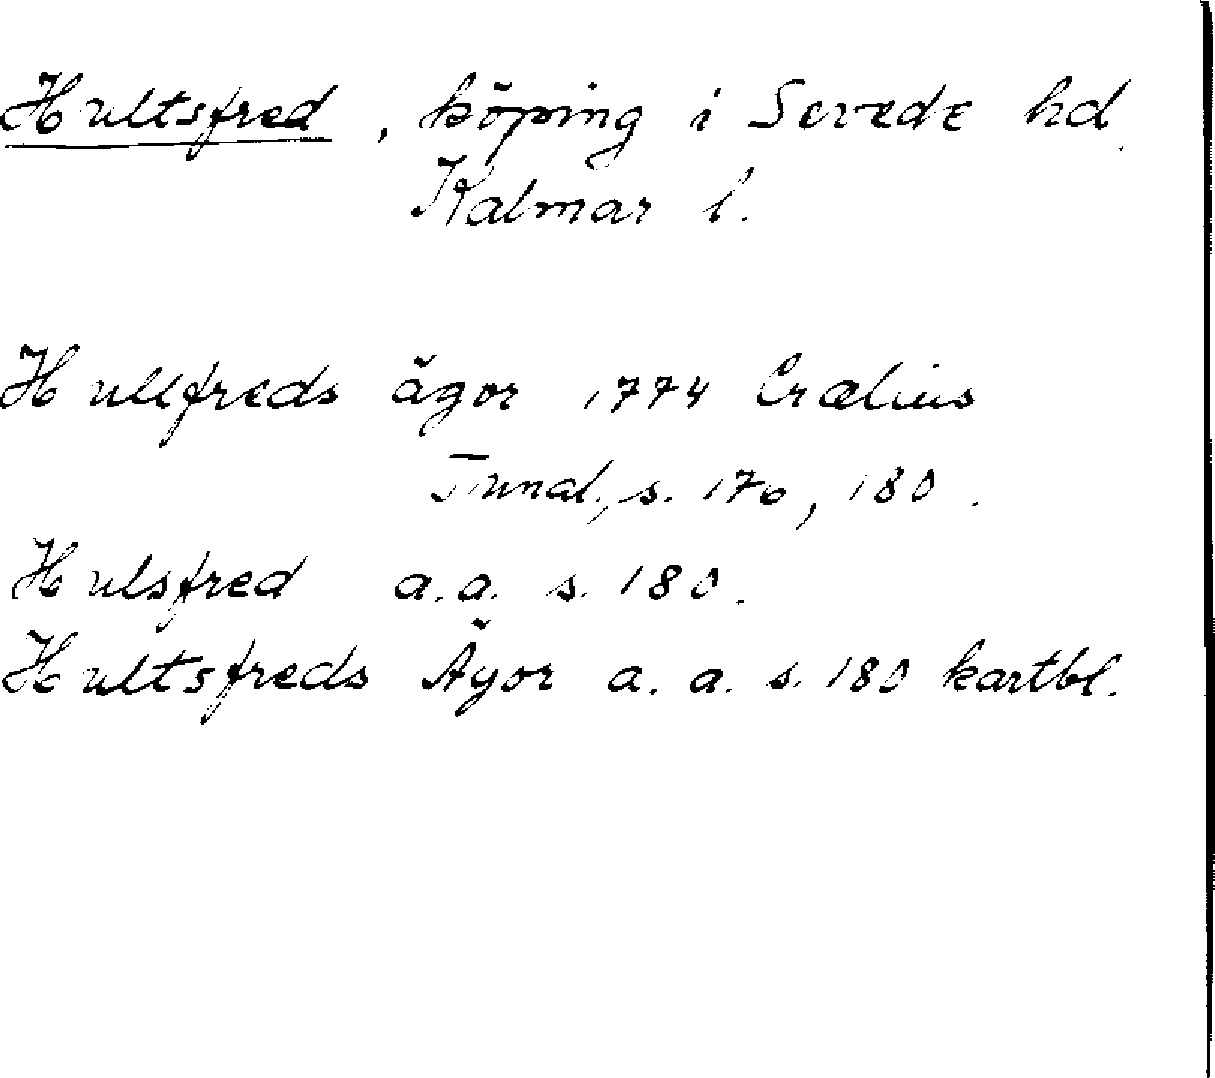 Hultsfred, köping i Sevede hd.
Kalmar l.
Hullfreds ägor 1774 Crælius
Tunal., s. 170, 180.
Hulsfred a.a. s. 180.
Hultsfreds Ägor a. a. s. 180 kartbl.